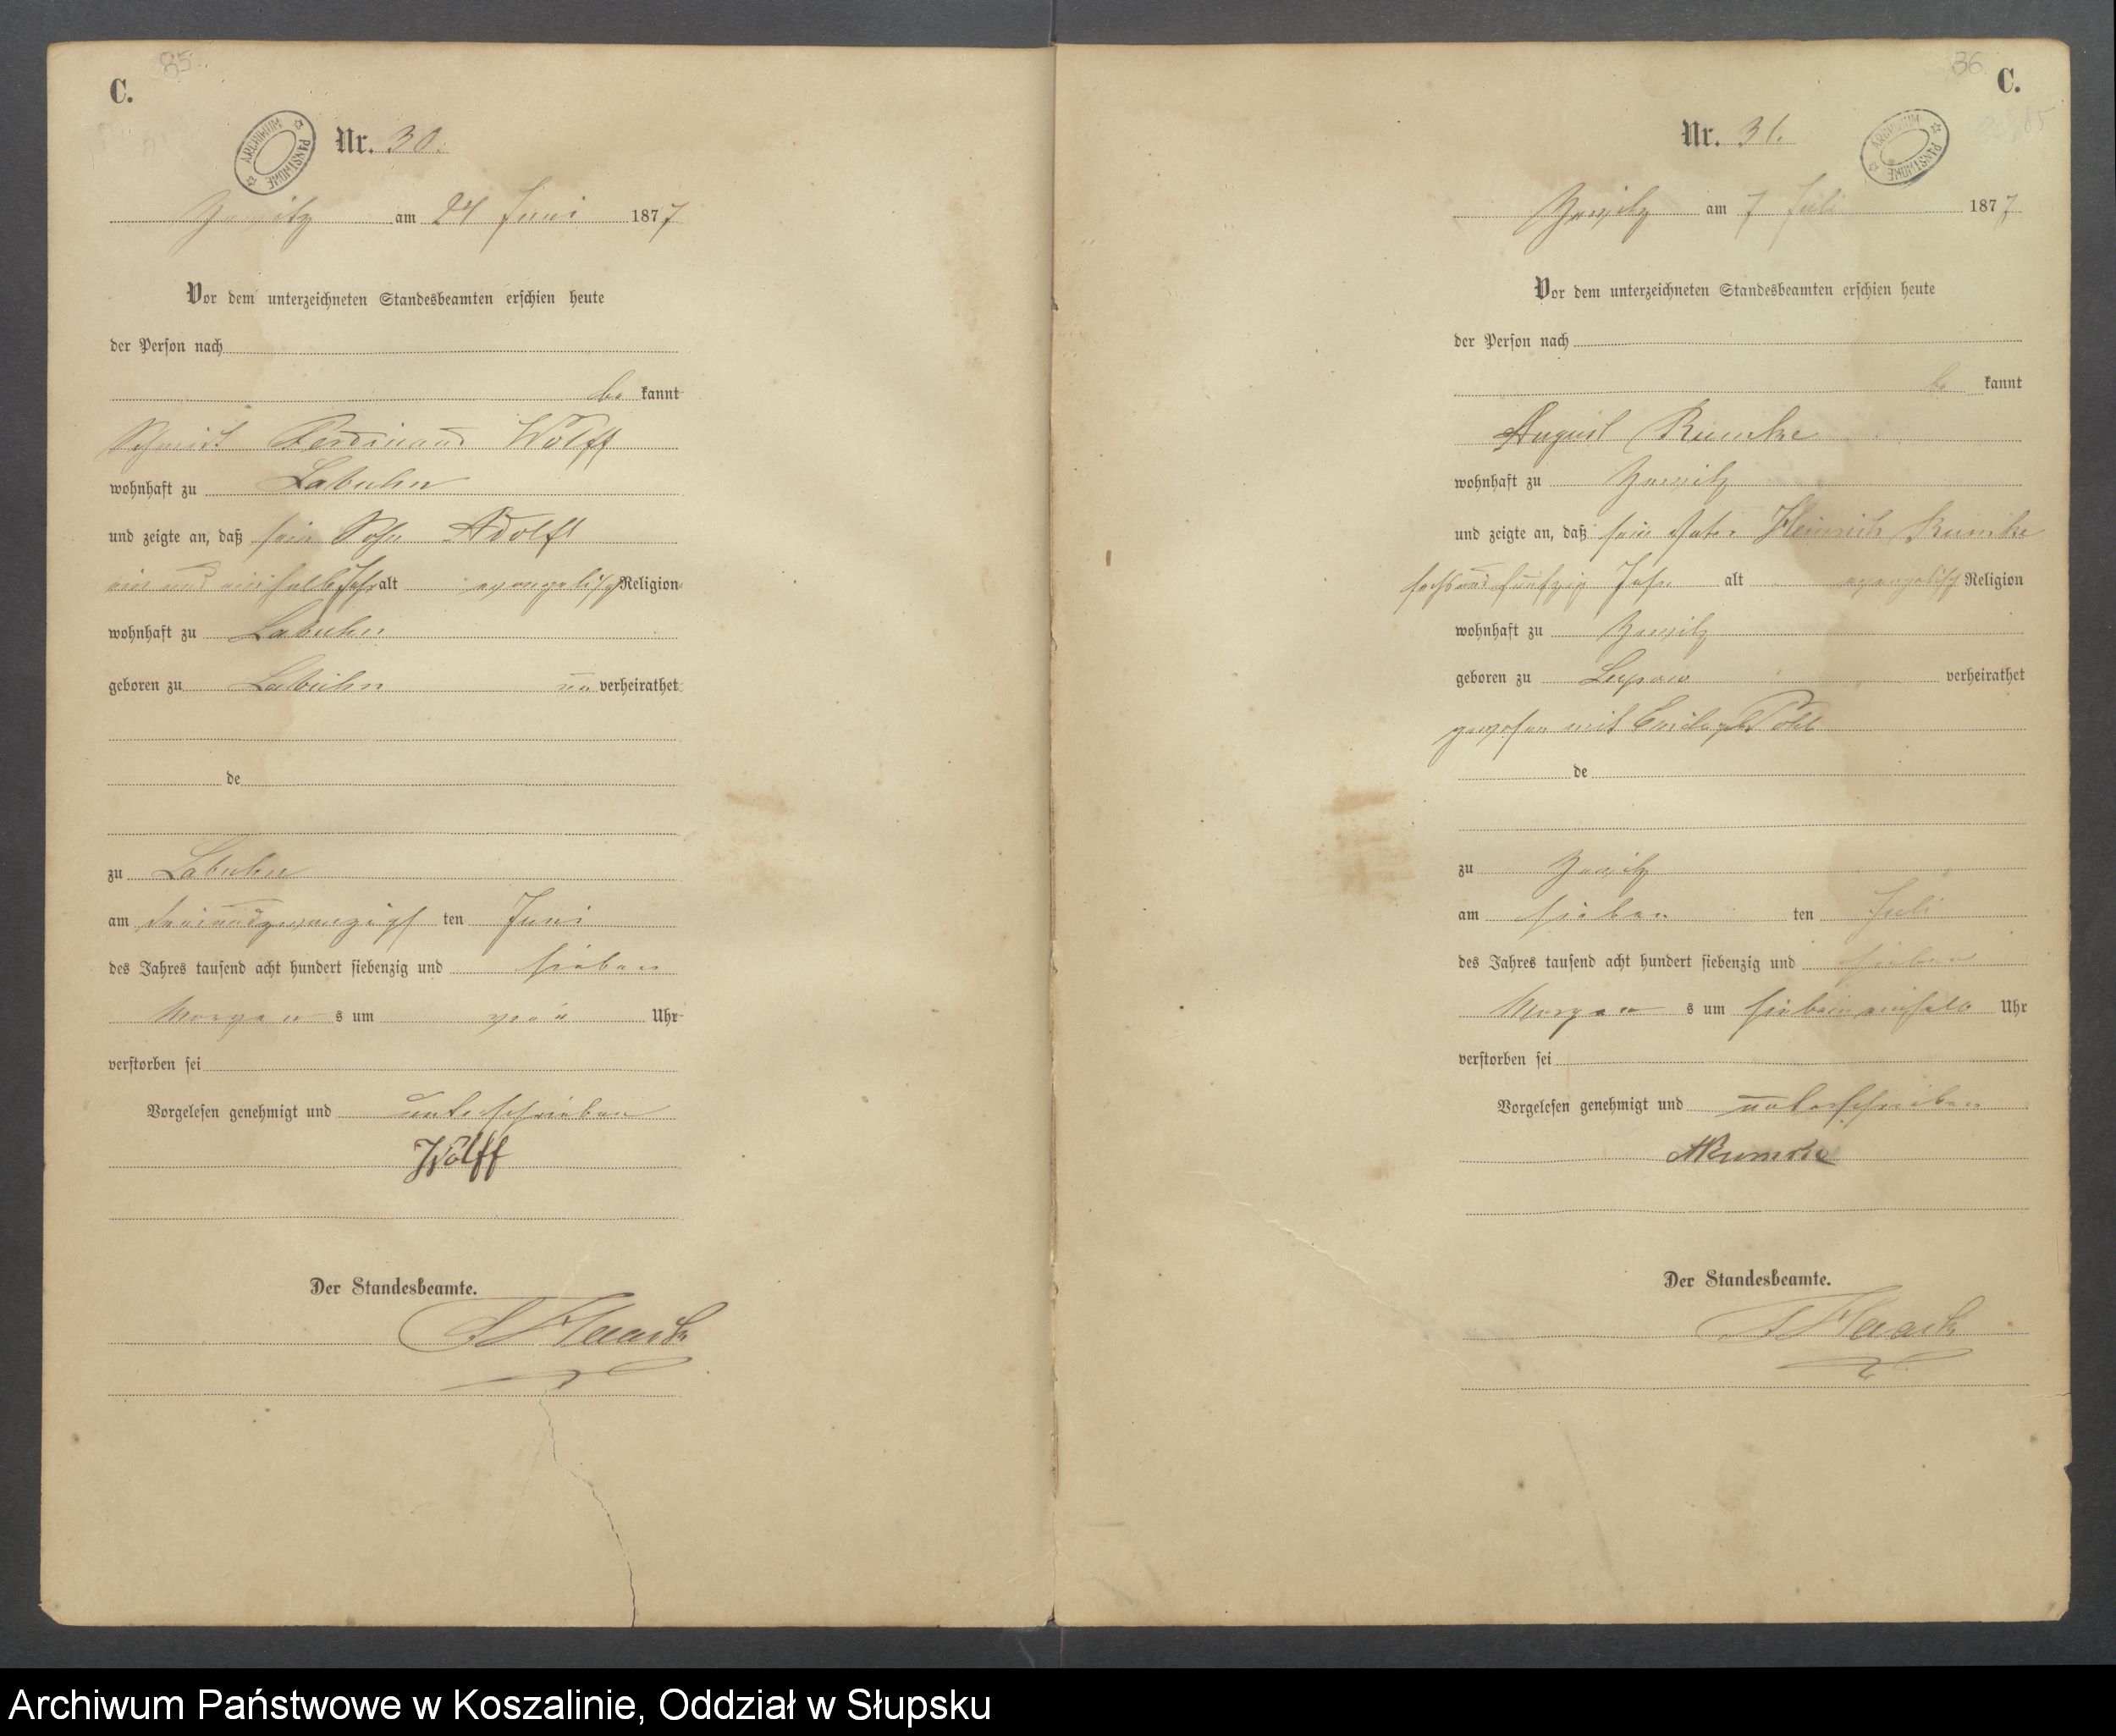 85.
C.
ARCHIWUM PAŃSTWOWE
Nr. 30.
Zewitz am 24 Juni 1877
Vor dem unterzeichneten Standesbeamten erschien heute
der Person nach
be kannt
Schmidt Ferdinand Wolff
wohnhaft zu Labuhn
und zeigte an, daß sein Sohn Adolf
ein und ein halb Jahr alt evangelisch Religion
wohnhaft zu Labuhn
geboren zu Labuhn un verheirathet
de
zu Labuhn
am dreiundzwanzigs ten Juni
des Jahres tausend acht hundert siebenzig und sieben
Morgen s um Uhr
verstorben sei
Vorgelesen genehmigt und unterschrieben
Wolff
Der Standesbeamte.
Haack
36
C.
Nr. 31.
ARCHIWUM PAŃSTWOWE
85
Zewitz am 7 Juli 1877
Vor dem unterzeichneten Standesbeamten erschien heute
der Person nach
be kannt
August Rumke
wohnhaft zu Zewitz
und zeigte an, daß sein Vater Heinrich Rumke
sechsundfunfzig Jahr alt evangelisch Religion
wohnhaft zu Zewitz
geboren zu Lupow verheirathet
gewesen mit geb Pohl
de
zu Zewitz
am sieben ten Juli
des Jahres tausend acht hundert siebenzig und sieben
Morgen s um sieben einhalb Uhr
verstorben sei
Vorgelesen genehmigt und unterschrieben
A Rumke
Der Standesbeamte.
Haack
Archiwum Państwowe w Koszalinie, Oddział w Słupsku